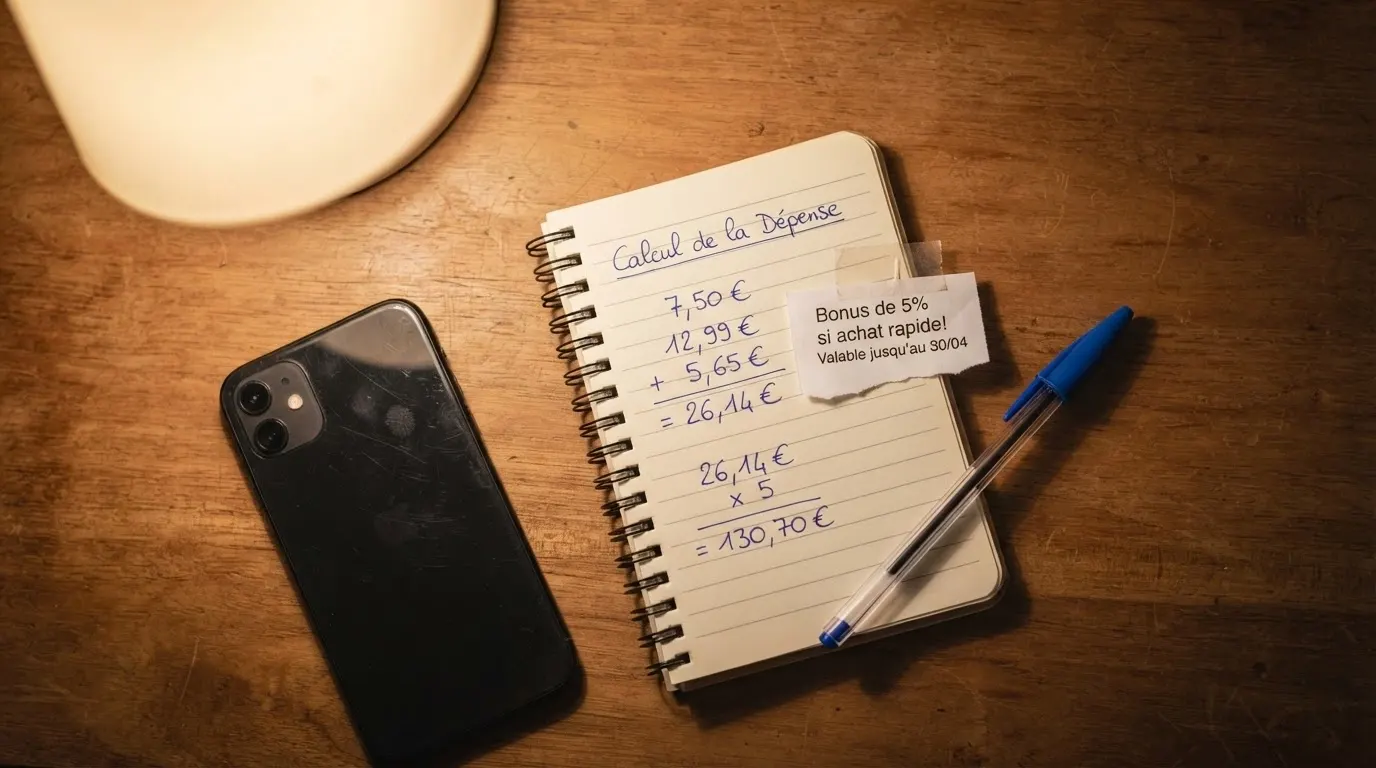 Calcul de la Dépense
7,50 €
12,99 €
+ 5,65 €
= 26,14 €
26,14 €
x 5
= 130,70 €
Bonus de 5%
si achat rapide!
Valable jusqu'au 30/04